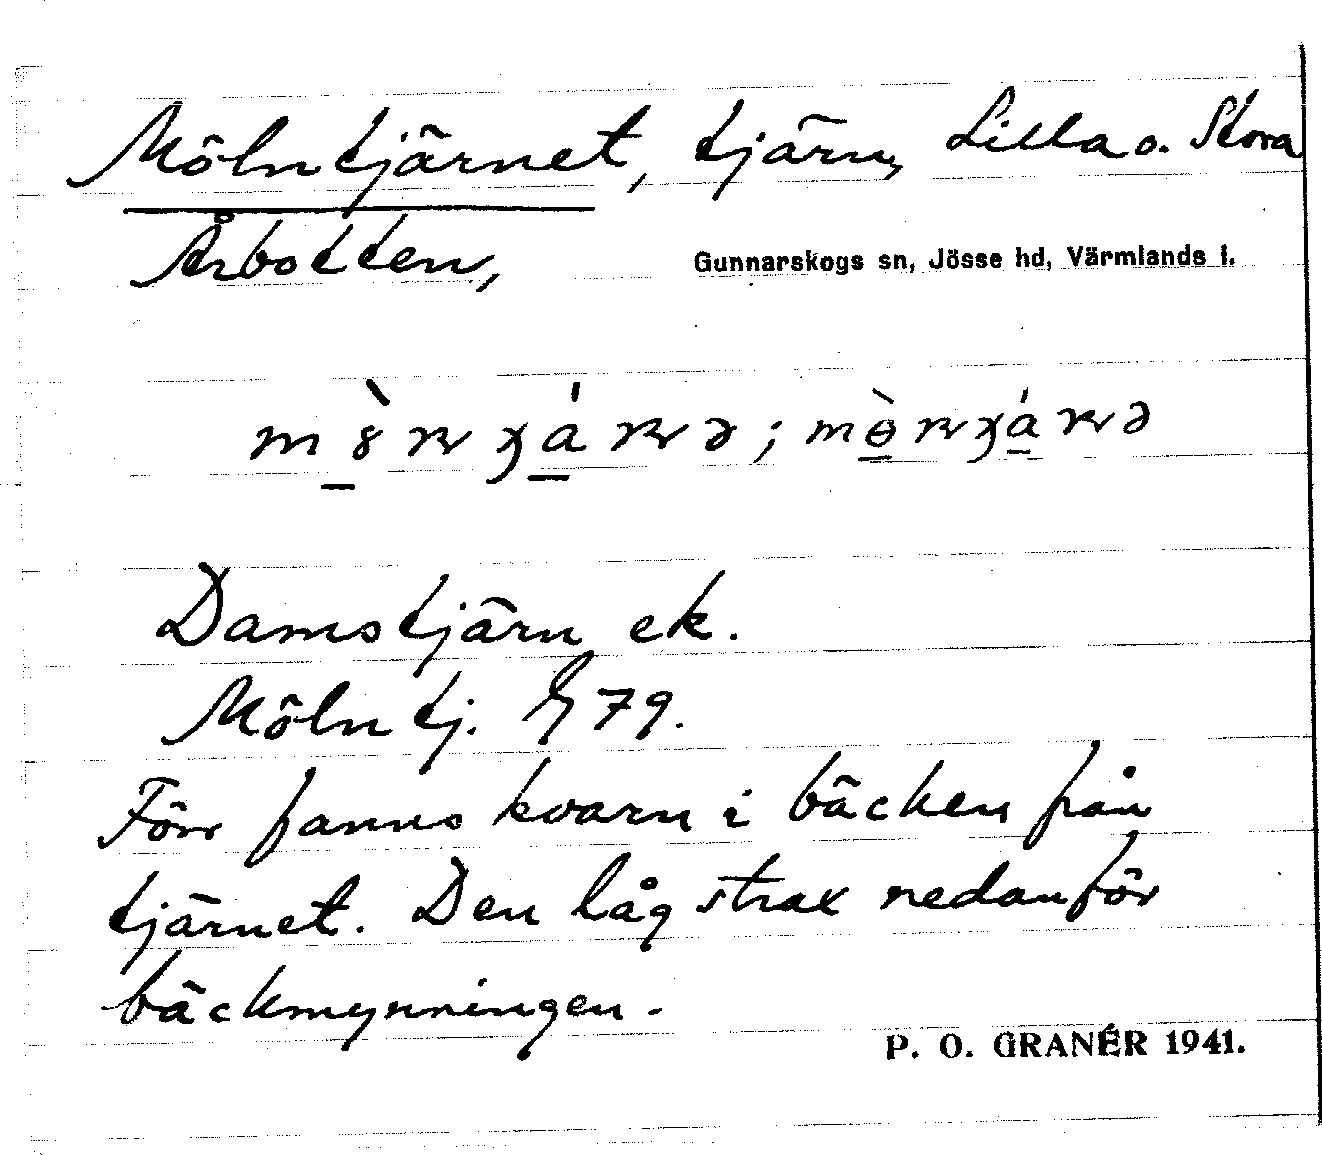 Mölntjärnet, tjärn, Lilla o. Stora
Årbotten,
Gunnarskogs sn, Jösse hd, Värmlands l.
Damstjärn ek.
Mölntj. 79.
Förr fanns kvarn i bäcken från
tjärnet. Den låg strax nedanför
bäckmynningen.
P. O. GRANÉR 1941.